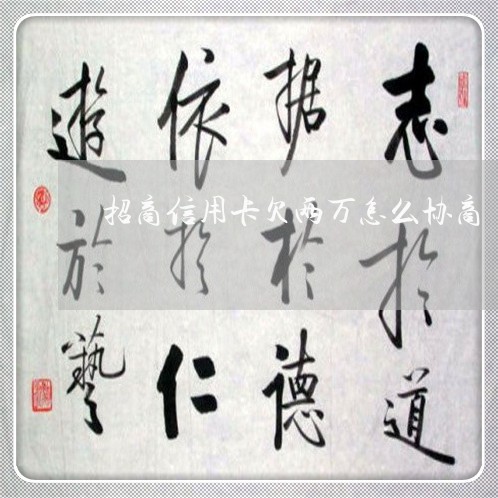 志於道
据於德
依於仁
遊於藝
招商信用卡欠两万怎么协商